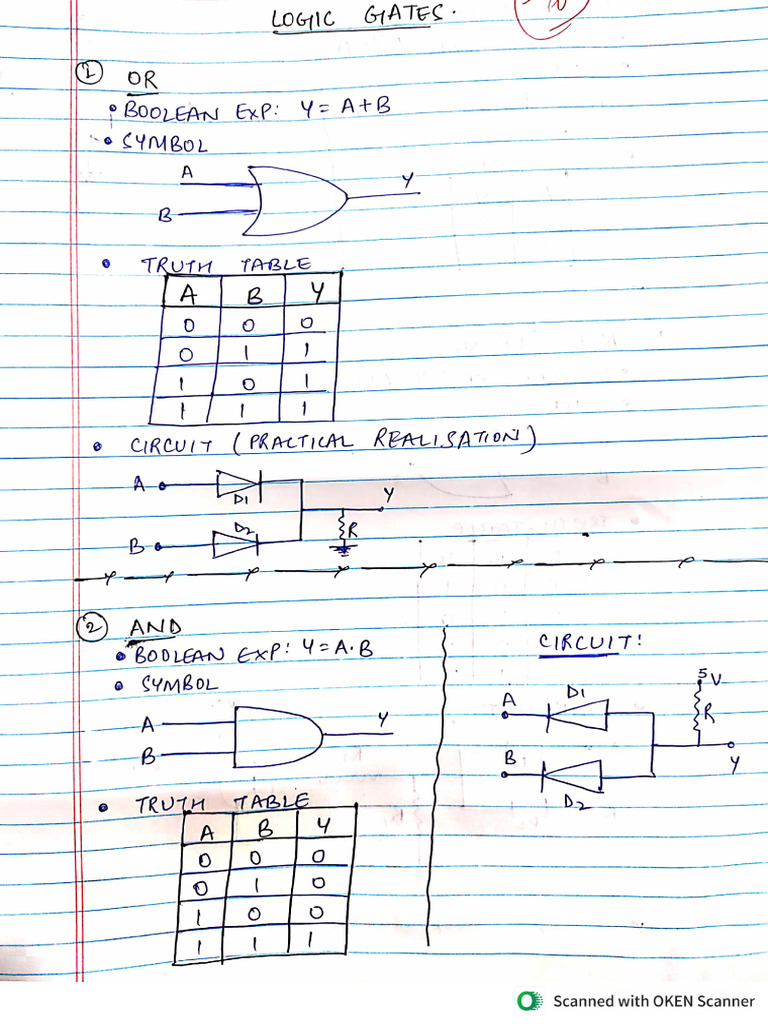 LOGIC GATES.
10
① OR
• BOOLEAN EXP: Y = A+B
• SYMBOL
A
Y
B
• TRUTH TABLE
A B Y
0 0 0
0 1 1
1 0 1
1 1 1
• CIRCUIT (PRACTICAL REALISATION)
A
D1
Y
D2
R
B
② AND
• BOOLEAN EXP: Y=A.B
• SYMBOL
A
Y
B
• TRUTH TABLE
A B Y
0 0 0
0 1 0
1 0 0
1 1 1
CIRCUIT:
5V
A
D1
R
B
Y
D2
Scanned with OKEN Scanner